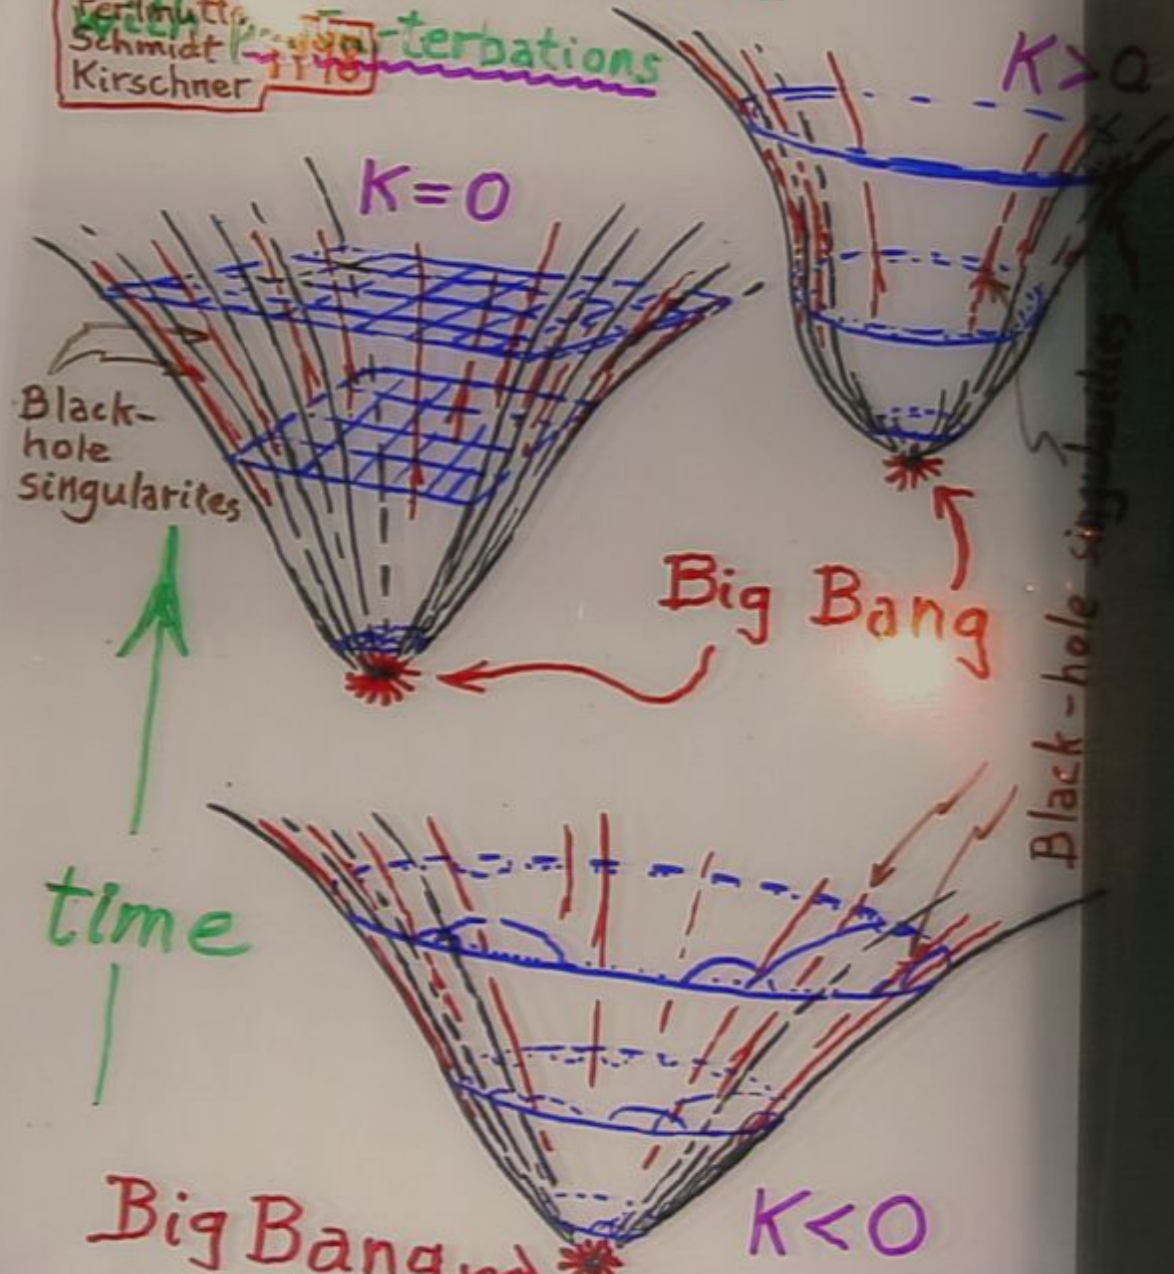 Schmidt
Kirschner
1998
with per-terbations
K>0
K=0
Black-
hole
singularites
Big Bang
Black-hole singularities
time
Big Bang
K<0